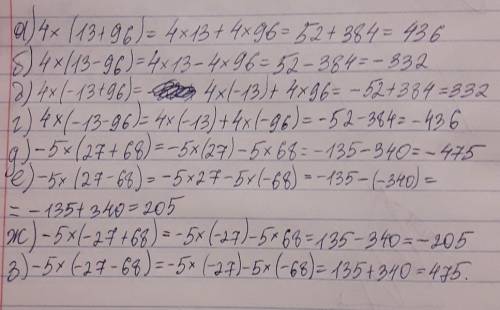 а) 4×(13+96)=4×13+4×96=52+384=436
б) 4×(13-96)=4×13-4×96=52-384=-332
д) 4×(-13+96)= 4×(-13)+4×96=-52+384=332
г) 4×(-13-96)=4×(-13)+4×(-96)=-52-384=-436
д) -5×(27+68)=-5×(27)-5×68=-135-340=-475
е) -5×(27-68)=-5×27-5×(-68)=-135-(-340)=
=-135+340=205
ж) -5×(-27+68)=-5×(-27)-5×68=135-340=-205
з) -5×(-27-68)=-5×(-27)-5×(-68)=135+340=475.